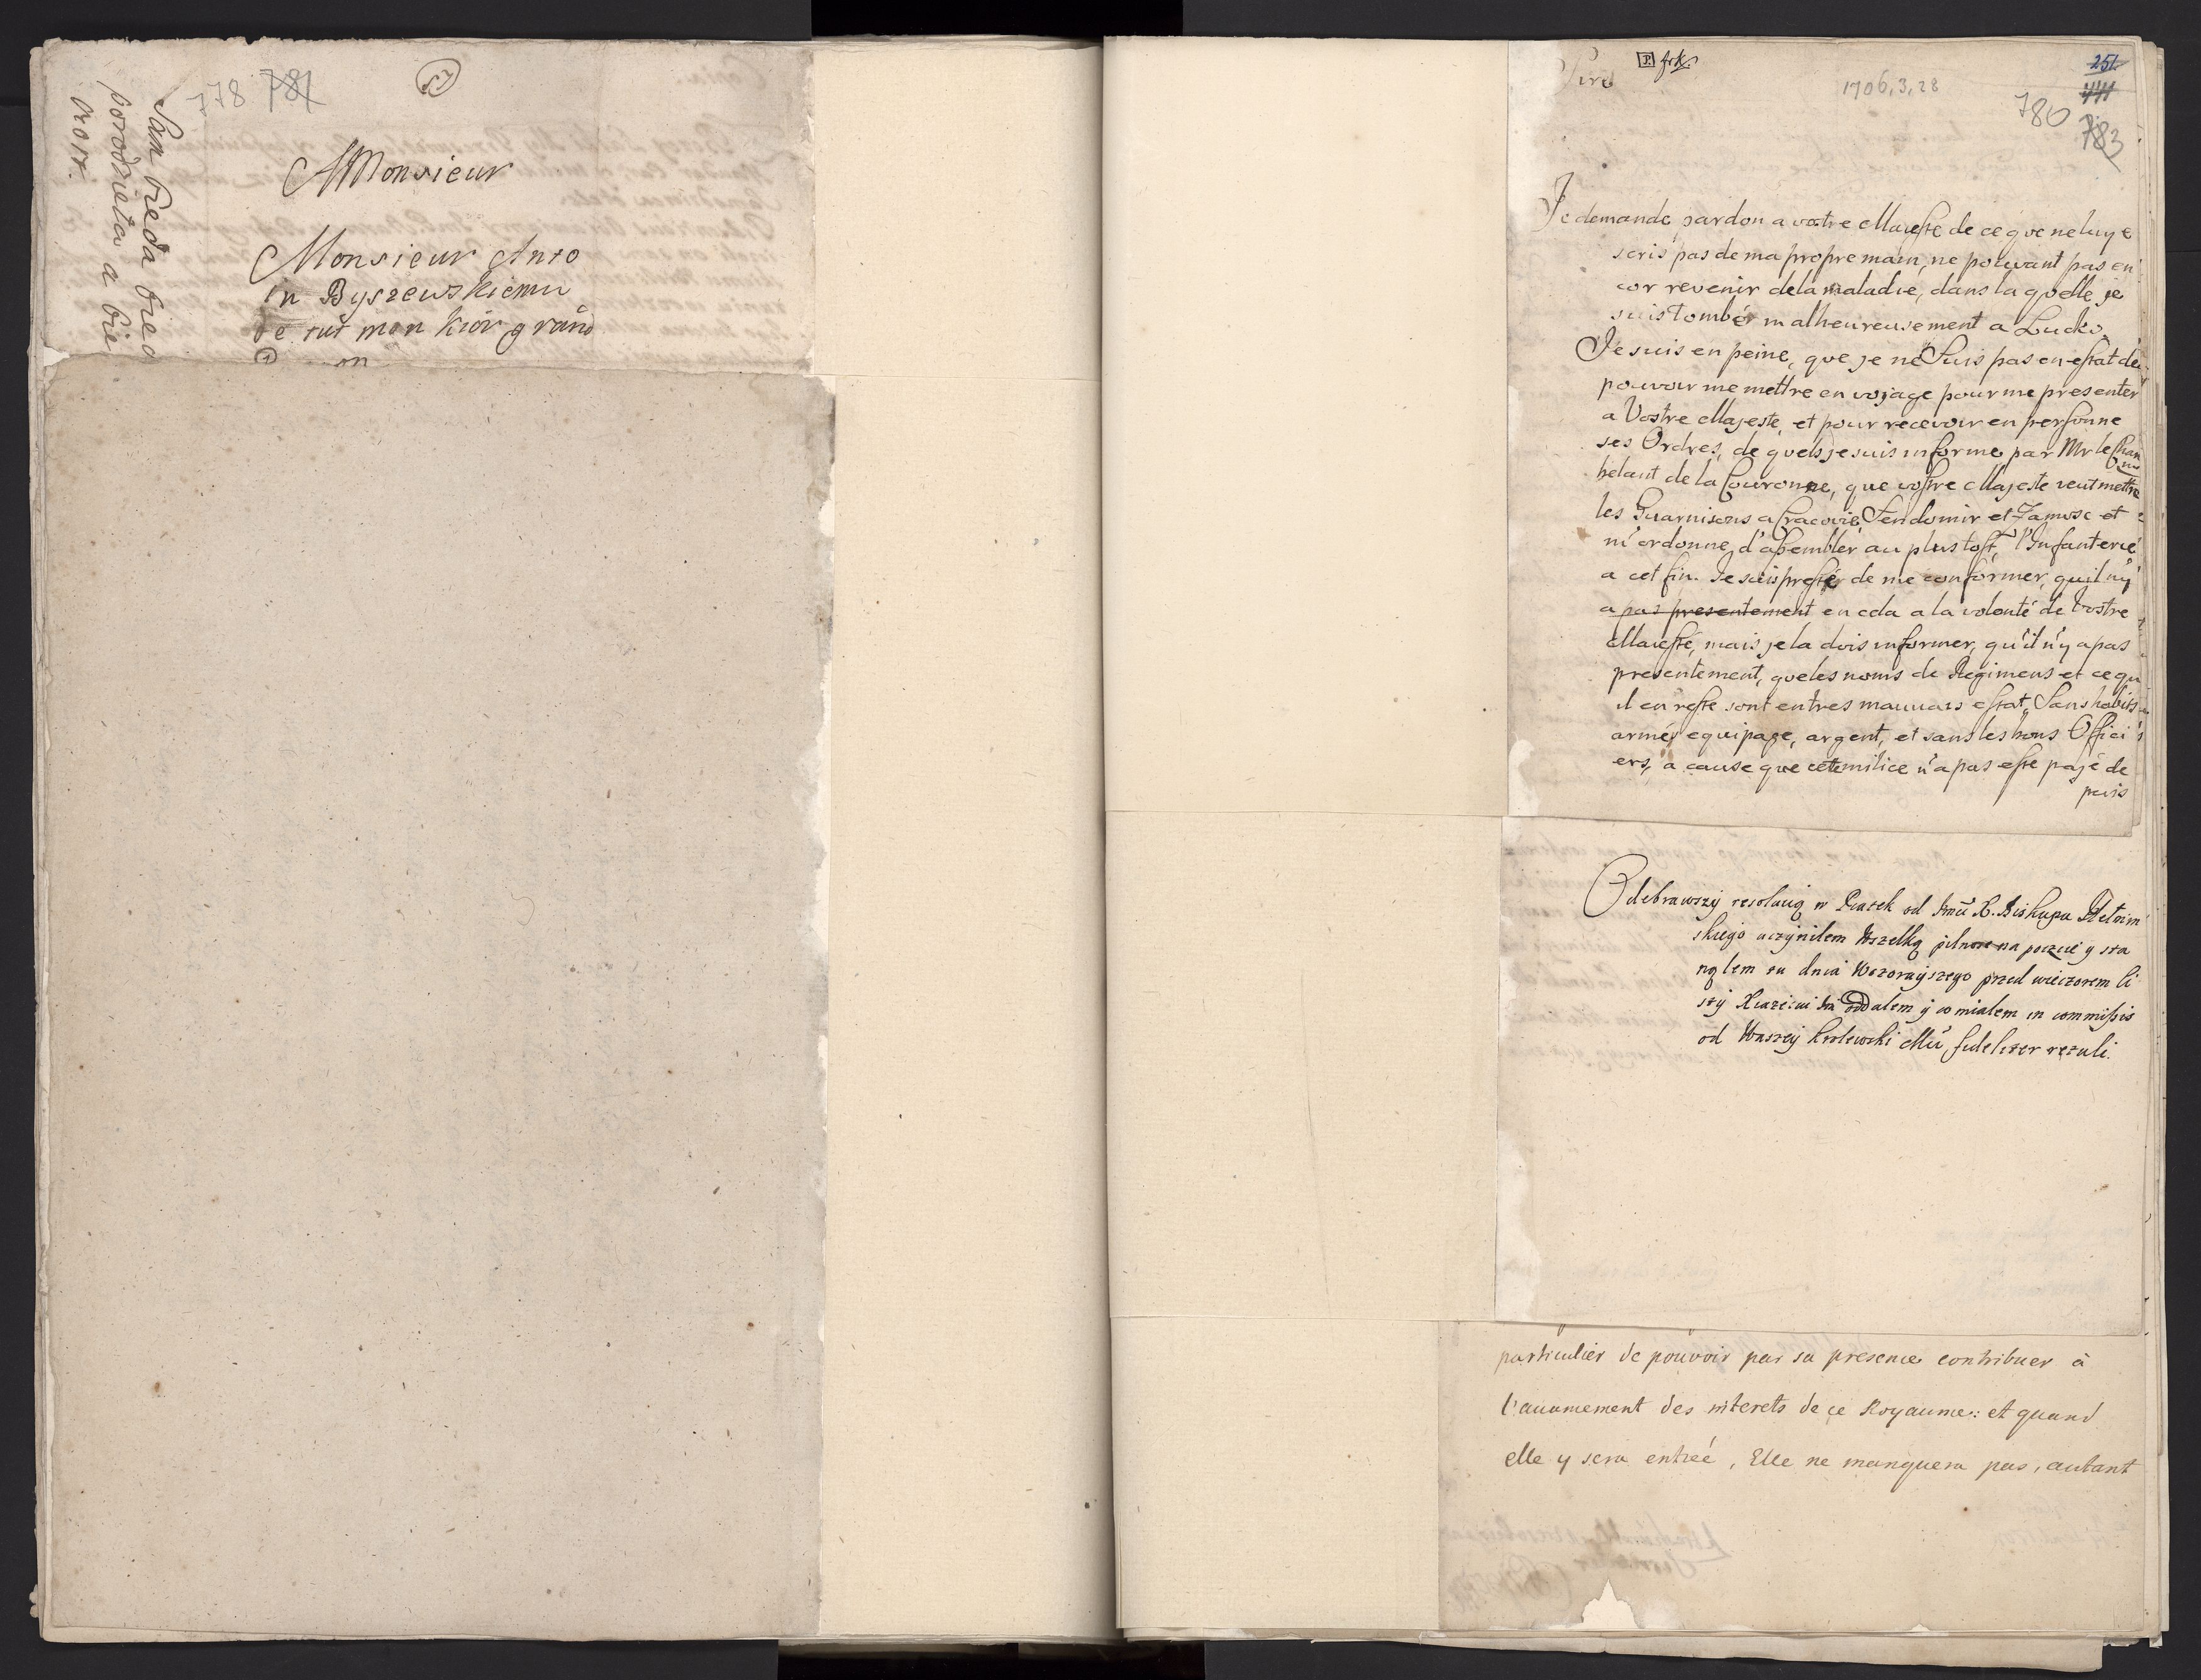 778 781
51
Sam bieda bied
porodzieła a bie
AMonsieur
Monsieur Anto
in Byszewskiemu
de tut mon kior grand
on
Sire
P. frk.
1706, 3, 28
251
441
780
783
Je demande pardon a vostre Maieste de ce que ne luy e
scris pas de ma propre main, ne pouvant pas en
cor revenir de la maladie, dans la quelle je
suis tombér malheureusement a Lucko.
Je suis en peine, que je ne suis pas en estat de
pouvoir me mettre en vojage pour me presenter
a Vostre Majeste, et pour recevoir en personne
ses Ordres, de quels je suis informe par Mr le Cham
belant de la Couronne, que vostre Majeste veut mettre
les Guarnisons a Cracovie, Sendomir et Zamosc et
m'ordonne d'assembler au plus tost, l'Infanterie
a cet fin. Je suis presté de me conformer, quil ny
a pas presentement en cela a la volonté de Vostre
Maiesté, mais je la dois informer, qu'il n'y a pas
presentement, que les noms de Regimens et ce qu
il en reste sont en tres mauvais estat, Sans habits
armés equipage, argent, et sans les bons Offici
ers, a cause que cette milice n'a pas este pajé de
puis
Odebrawszy resolucią w Piątek od Jmci X. Biskupa Chełmin
skiego uczyniłem wszelką pilnosc na poczcie y sta
nąłem tu dnia wczorayszego przed wieczorem li
sty Xiazeciu Jmci oddałem y co miałem in commissis
od Waszey Krolewski Mci fideliter retuli.
particulier de pouvoir par sa presence contribuer à
l'avancement des interets de ce Royaume: et quand
elle y sera entrée, Elle ne manquera pas, autant